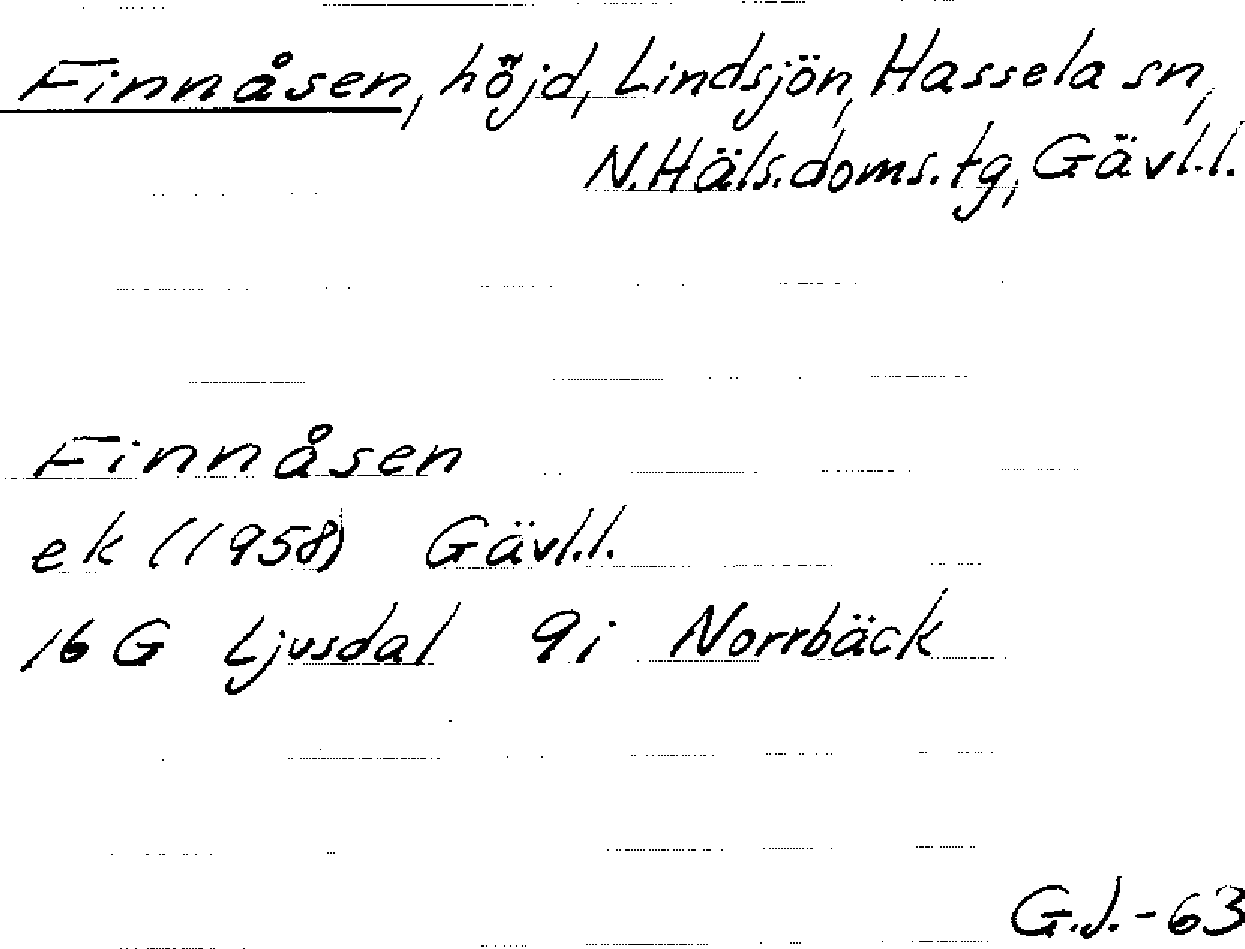 Finnåsen, höjd, Lindsjön, Hassela sn,
N.Häls.doms.tg, Gävl.l.
Finnåsen
ek (1958) Gävl.l.
16 G Ljusdal 9i Norrbäck
G.J.-63